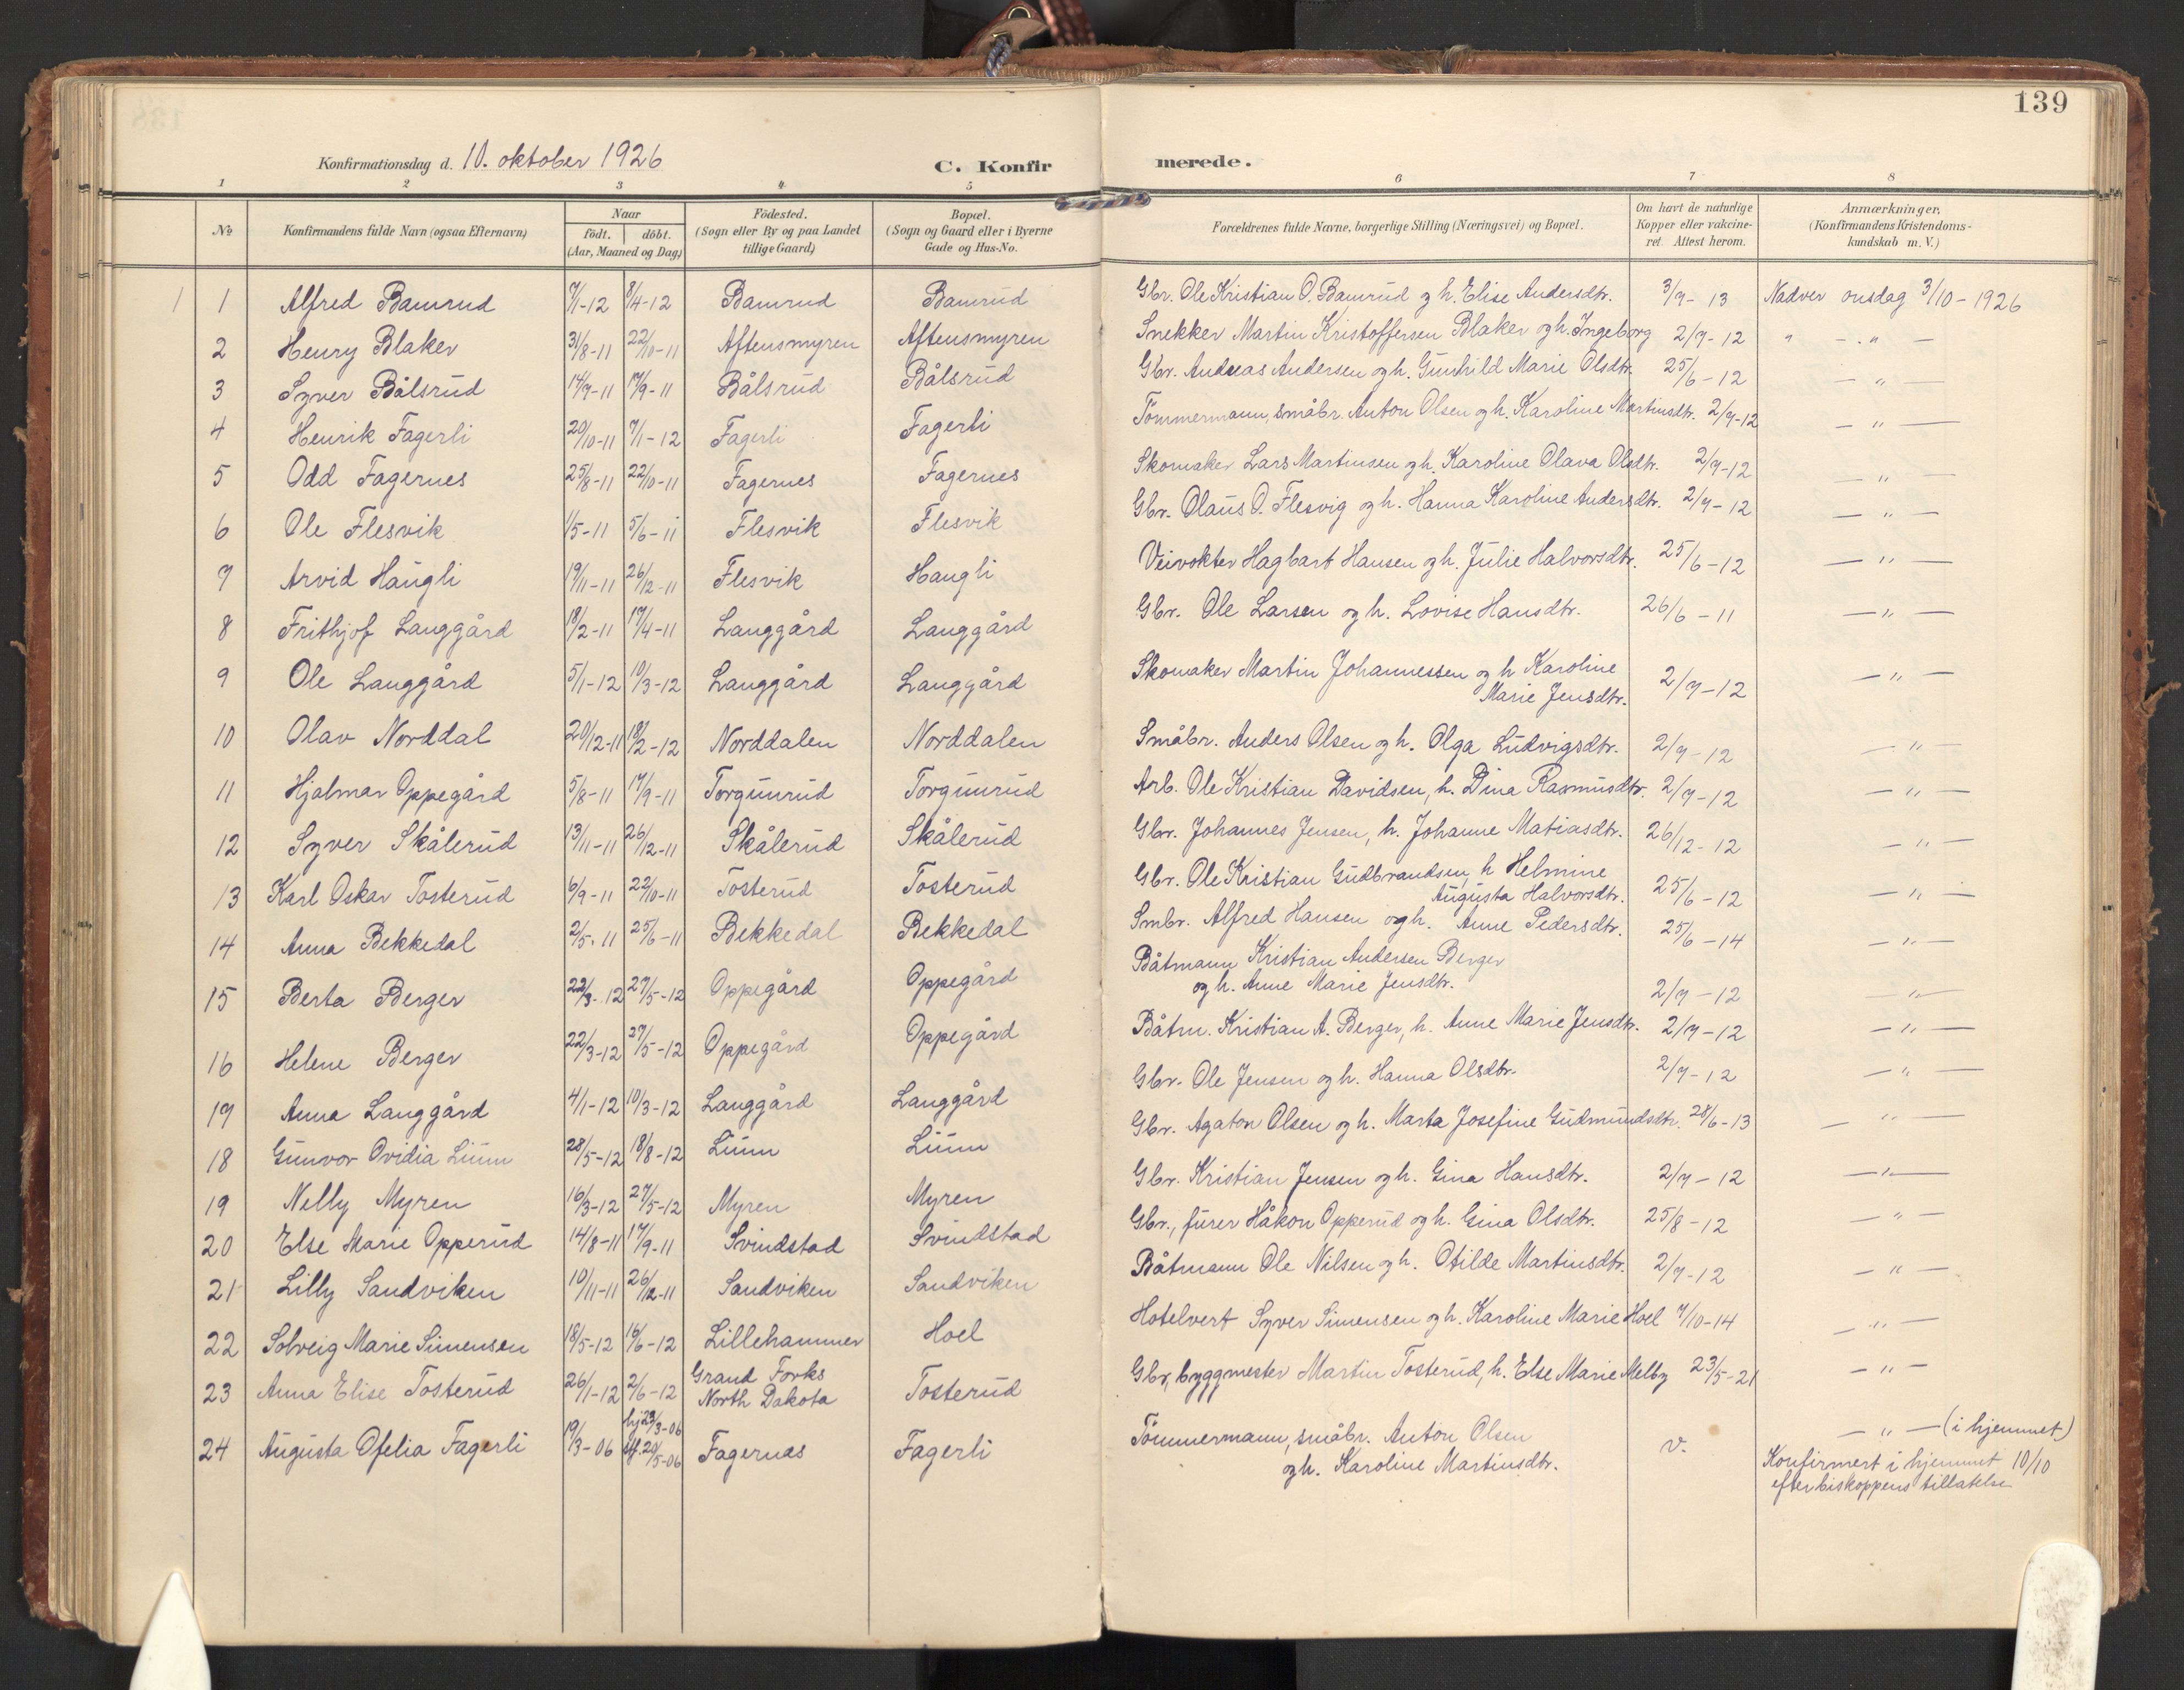 139
Konfirmationsdag d. 10. oktober 1926
C. Konfirmerede.
1 2 3 4 5 6 7 8
No
Konfirmandens fulde Navn (ogsaa Efternavn)
Naar
født. døbt.
(Aar, Maaned og Dag)
Fødested.
(Sogn eller By og paa Landet
tillige Gaard)
Bopæl.
(Sogn og Gaard eller i Byerne
Gade og Hus-No.
Forældrenes fulde Navne, borgerlige Stilling (Næringsvei) og Bopæl.
Om havt de naturlige
Kopper eller vakcine-
ret. Attest herom.
Anmærkninger.
(Konfirmandens Kristendoms-
kundskab m. V.)
1 1 Alfred Bamrud 7/1-12 8/4-12 Bamrud Bamrud Gbr. Ole Kristian O. Bamrud og h. Elise Andersdtr. 3/7-13 Nadver onsdag 3/10-1926
2 Henry Blaker 31/8-11 22/10-11 Aftensmyren Aftensmyren Snekker Martin Kristoffersen Blaker og h. Ingeborg 2/7-12 " - " -
3 Syver Bålsrud 14/7-11 17/9-11 Bålsrud Bålsrud Gbr. Andreas Andersen og h. Gunhild Marie Olsdtr. 25/6-12 - " -
4 Henrik Fagerli 20/10-11 7/1-12 Fagerli Fagerli Tömmermann, småbr. Anton Olsen og h. Karoline Martinsdtr. 2/7-12 - " -
5 Odd Fagernes 25/8-11 22/10-11 Fagernes Fagernes Skomaker Lars Martinsen og h. Karoline Olava Olsdtr. 2/7-12 - " -
6 Ole Flesvik 1/5-11 5/6-11 Flesvik Flesvik Gbr. Olaus O. Flesvig og h. Hanna Karoline Andersdtr. 2/7-12 - " -
7 Arvid Haugli 19/11-11 26/12-11 Flesvik Haugli Veivokter Hagbart Hansen og h. Julie Halvorsdtr. 25/6-12 - " -
8 Frithjof Langgård 18/2-11 17/4-11 Langgård Langgård Gbr. Ole Larsen og h. Lovise Hansdtr. 26/6-11 - " -
9 Ole Langgård 5/1-12 10/3-12 Langgård Langgård Skomaker Martin Johannessen og h Karoline
Marie Jensdtr. 2/7-12 - " -
10 Olav Norddal 20/12-11 18/2-12 Norddalen Norddalen Småbr. Anders Olsen og h. Olga Ludvigsdtr. 2/7-12 - " -
11 Hjalmar Oppegård 5/8-11 17/9-11 Torgunrud Torgunrud Arb. Ole Kristian Davidsen, h. Dina Rasmusdtr. 2/7-12 - " -
12 Syver Skålerud 13/11-11 26/12-11 Skålerud Skålerud Gbr. Johannes Jensen, h. Johanne Matiasdtr. 26/12-12 - " -
13 Karl Oskar Tosterud 6/9-11 22/10-11 Tosterud Tosterud Gbr. Ole Kristian Gudbrandsen, h Helmine
Augusta Halvorsdtr. 25/6-12 - " -
14 Anna Bekkedal 2/5.11 25/6-11 Bekkedal Bekkedal Smbr. Alfred Hansen og h. Anne Pedersdtr. 25/6-14 - " -
15 Berta Berger 22/3-12 27/5-12 Oppegård Oppegård Båtmann Kristian Andersen Berger
og h. Anne Marie Jensdtr. 2/7-12 - " -
16 Helene Berger 22/3-12 27/5-12 Oppegård Oppegård Båtm. Kristian A. Berger, h. Anne Marie Jensdtr. 2/7-12 - " -
17 Anna Langgård 4/1-12 10/3-12 Langgård Langgård Gbr. Ole Jensen og h. Hanna Olsdtr. 2/7-12 - " -
18 Gunvor Ovidia Lium 28/5-12 18/8-12 Lium Lium Gbr. Agaton Olsen og h. Marta Josefine Gudmundsdtr. 28/6-13 - " -
19 Nelly Myren 16/3-12 27/5-12 Myren Myren Gbr. Kristian Jensen og h. Gina Hansdtr. 2/7-12 - " -
20 Else Marie Opperud 14/8-11 17/9-11 Svindstad Svindstad Gbr., furer Håkon Opperud og h. Gina Olsdtr. 25/8-12 - " -
21 Lilly Sandviken 10/11-11 26/12-11 Sandviken Sandviken Båtmann Ole Nilsen og h. Otilde Martinsdtr. 2/7-12 - " -
22 Solveig Marie Simensen 18/5-12 16/6-12 Lillehammer Hoel Hotelvert Syver Simensen og h. Karoline Marie Hoel 7/10-14 - " -
23 Anna Elise Tosterud 26/1-12 2/6-12 Grand Forks
North Dakota Tosterud Gbr, byggmester Martin Tosterud, h. Else Marie Melby 23/5-21 - " -
24 Augusta Ofelia Fagerli 19/3-06 hj 23/3-06
stf. 20/5-06 Fagernas Fagerli Tömmermann, småbr. Anton Olsen
og h. Karoline Martinsdtr. v. - " - (i hjemmet)
Konfirmert i hjemmet 10/10
efter biskoppens tillatelse